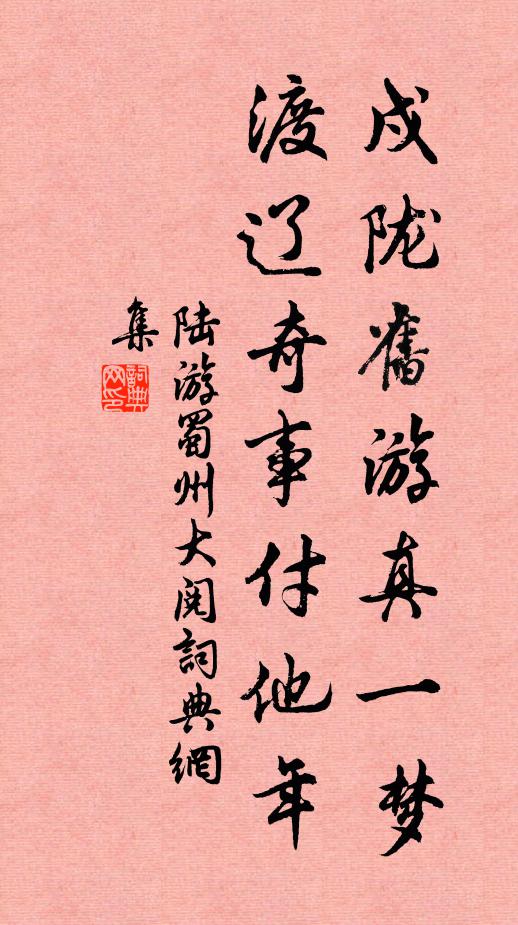 戍陇舊游真一梦
渡辽奇事付他年
陆游蜀州大阅詞典網
集
詞典
网印